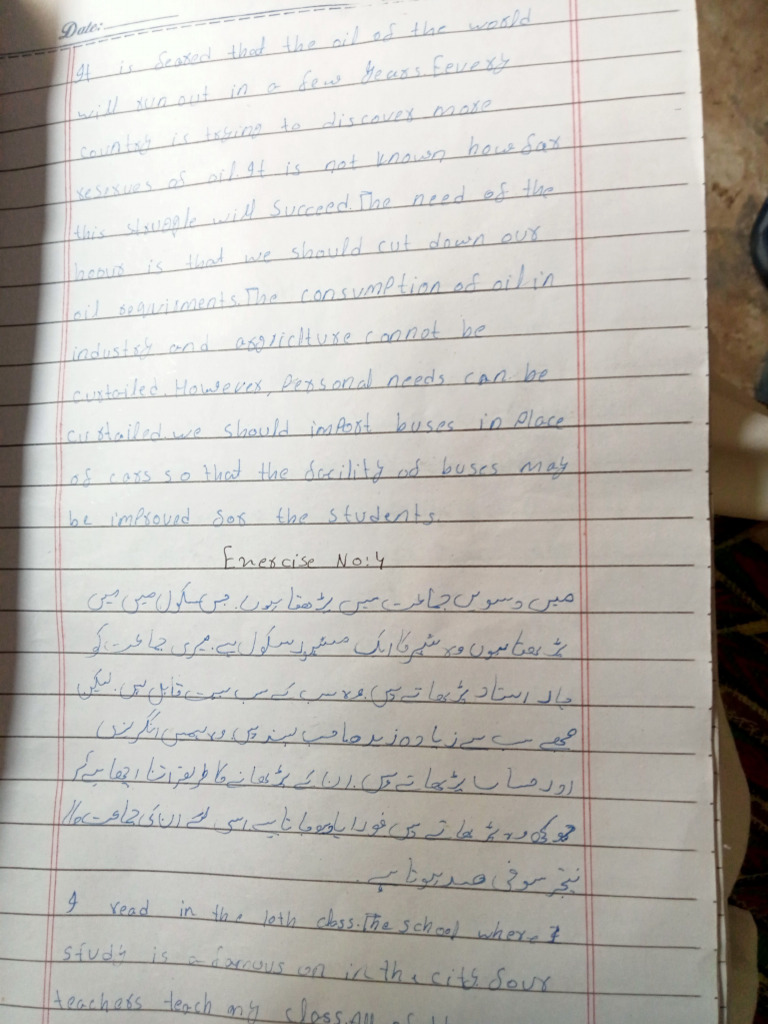 Date:
It is feared that the oil of the world
will run out in a few years. Every
country is trying to discover more
reserves of oil. It is not known how far
this struggle will succeed. The need of the
hour is that we should cut down our
oil requirments. The consumption of oil in
industry and agriclture cannot be
curtailed. However, Personal needs can be
curtailed. we should import buses in Place
of cars so that the facility of buses may
be improved for the students.
Exercise No:4
میں دسویں جماعت میں پڑھتا ہوں۔ جس سکول میں میں
پڑھتا ہوں وہ شہر کا ایک مشہور سکول ہے۔ میری جماعت کو
چار استاد پڑھاتے ہیں۔ وہ سب کے سب بہت قابل ہیں۔ لیکن
مجھے سب سے زیادہ زید صاحب پسند ہیں وہ ہمیں انگریزی
اور حساب پڑھاتے ہیں۔ ان کے پڑھانے کا طریقہ اتنا اچھا ہے کہ
جو کچھ وہ پڑھاتے ہیں فورا یاد ہو جاتا ہے اسی لئے ان کی جماعت کا
نتیجہ سو فی صد ہوتا ہے۔
I read in the 10th class. The school where I
study is a famous on in the city four
teachers teach my class. All of